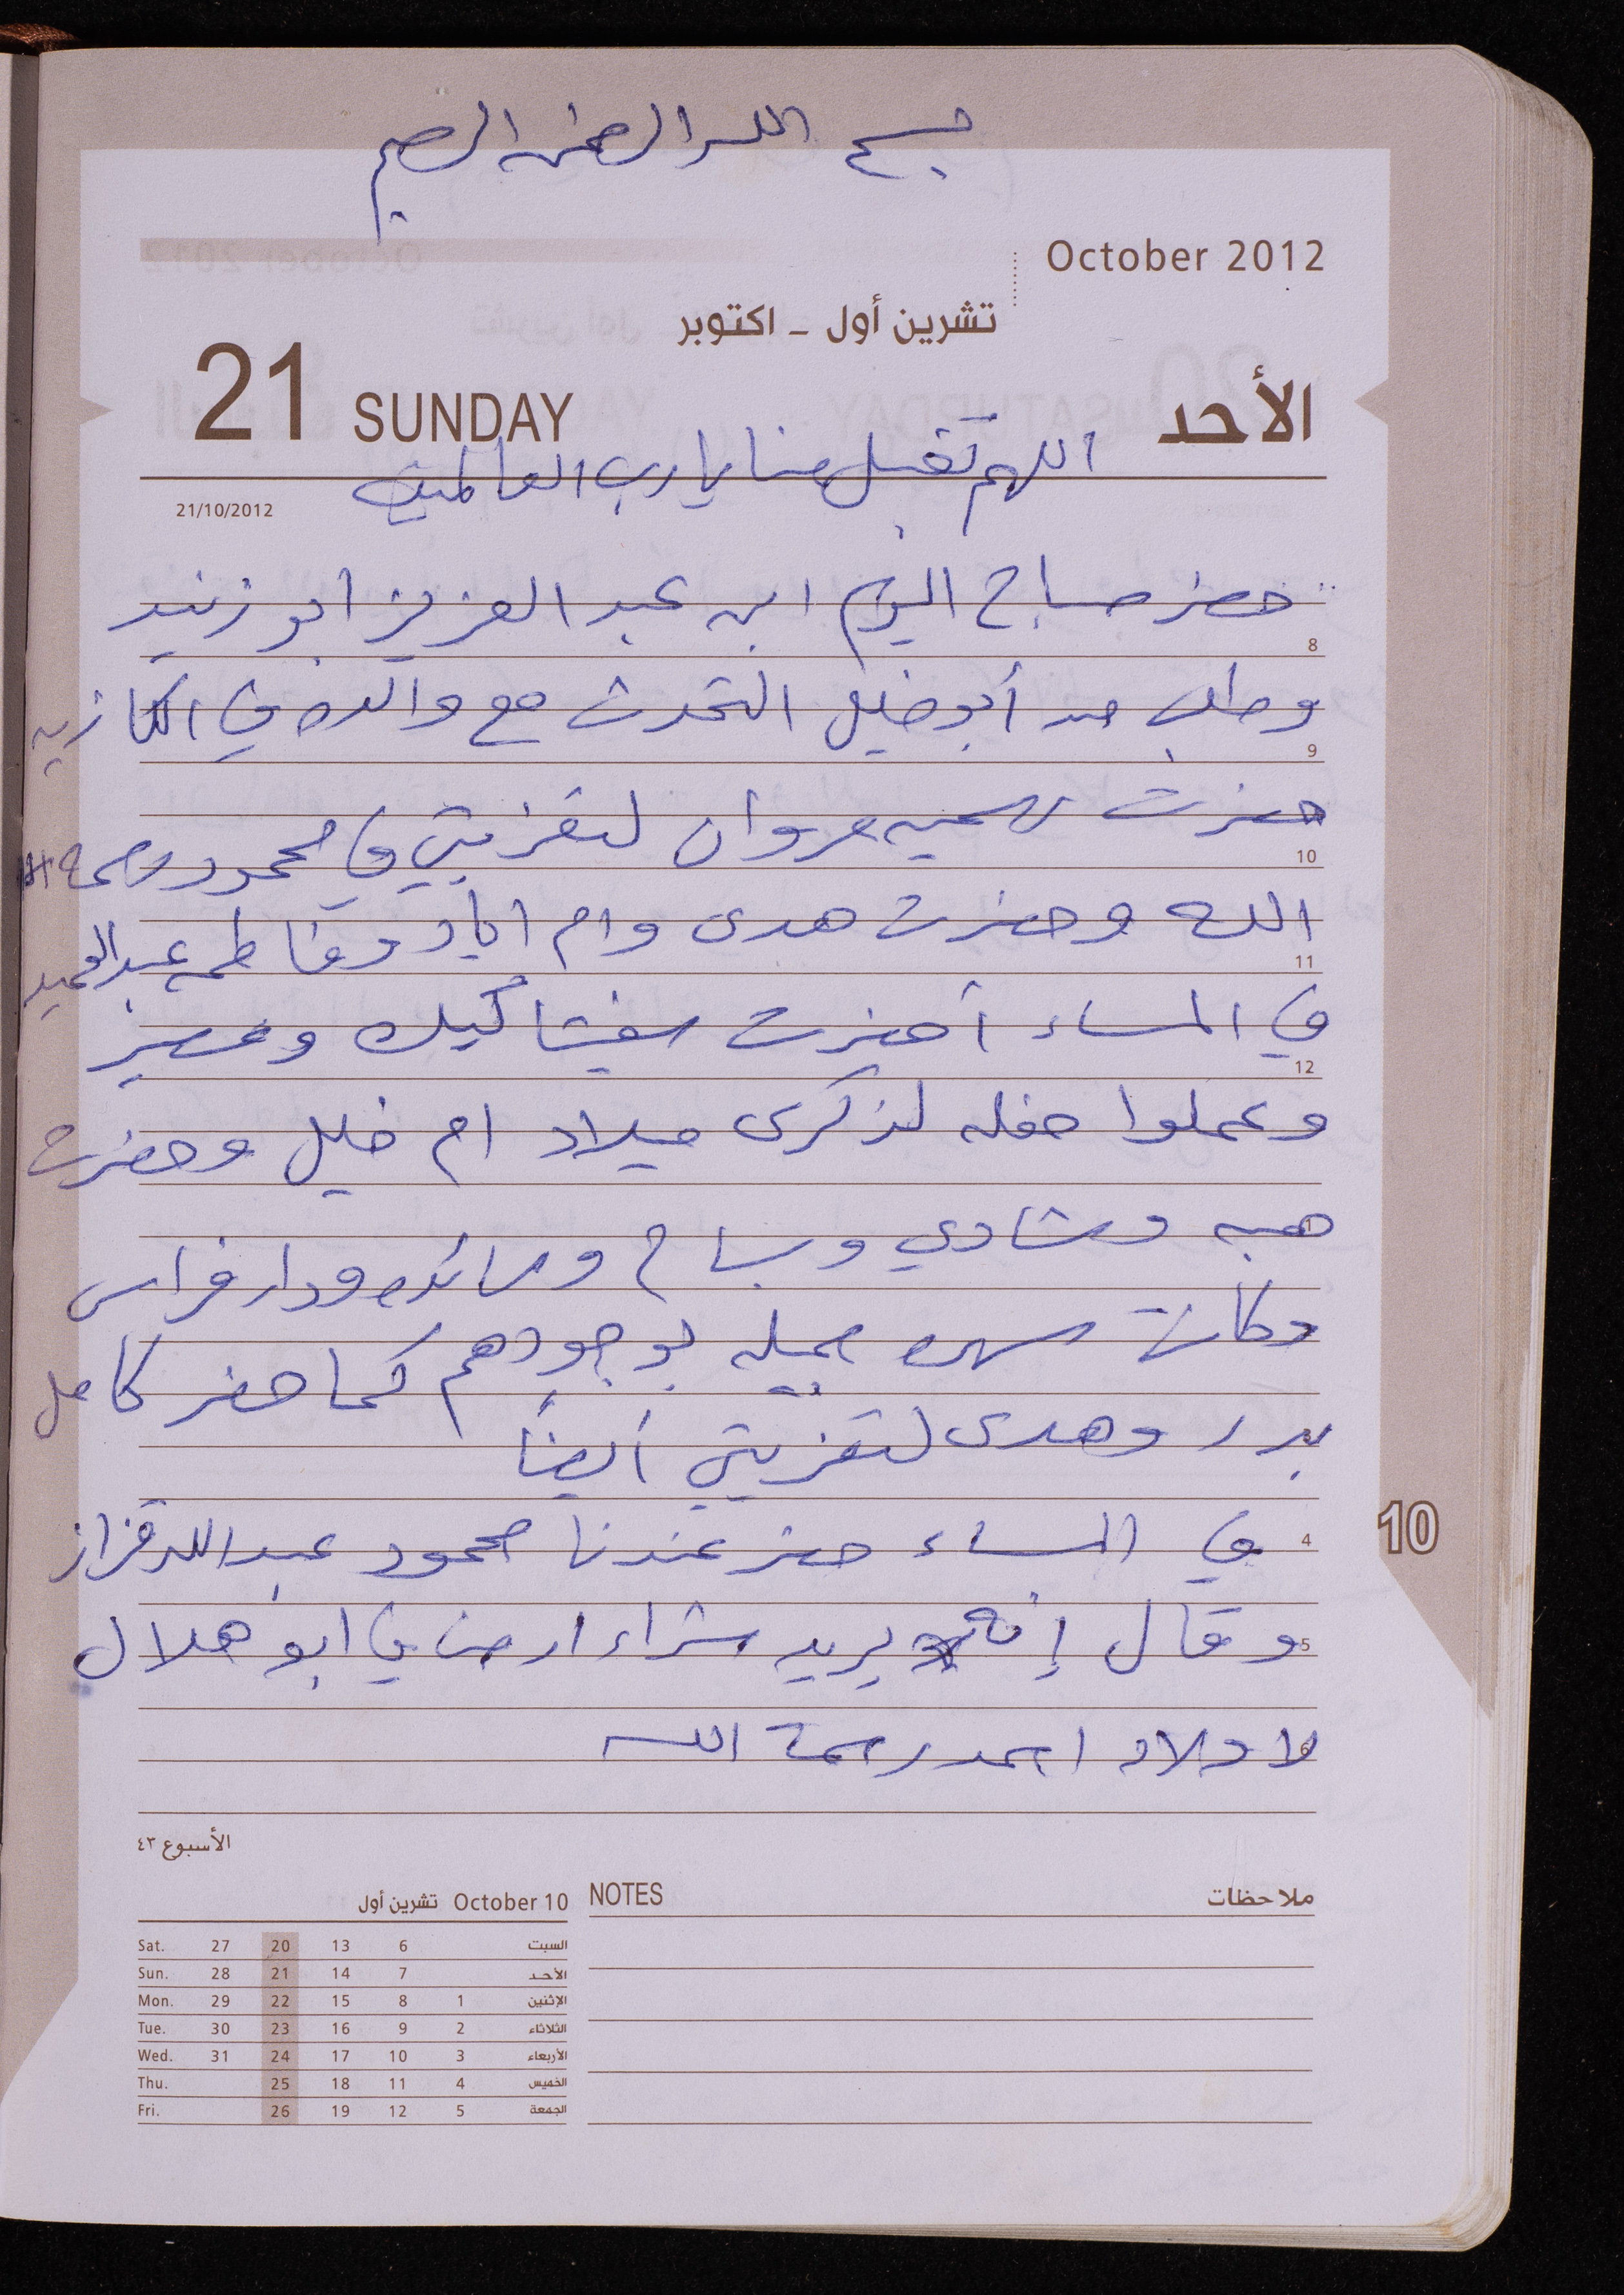 بسم الله الرحمن الرحيم
October 2012
تشرين أول - اكتوبر
21 SUNDAY الأحد
اللهم تقبل منا يا رب العالمين
21/10/2012
حضر صباح اليوم ابن عبد العزيز ابو زنيد
8
وطلب من أبو خليل التحدث مع والده في الكازيه
9
حضرت سميه مروان لتعزيتي في محمود رحمه
10
الله وحضرت هدى وام اياد وفاطمه عبد الحميد
11
في المساء أحضرت كيك وعصير
12
وعملوا حفله لذكرى ميلاد ام خليل وحضرت
1
هبه وشادي وسماح ورائده ودار فراس
وكانت سهره جميله بوجودهم كما حضر كامل
بدر وهدى لتعزيتي أيضاً
في المساء حضر عندنا محمود عبد الله قزاز
4
10
وقال إنه يريد شراء ارضنا في ابو هلال
5
لاولاد احمد رحمة الله
6
الأسبوع ٤٣
October 10 تشرين أول
NOTES ملاحظات
Sat. 27 20 13 6 السبت
Sun. 28 21 14 7 الأحد
Mon. 29 22 15 8 1 الإثنين
Tue. 30 23 16 9 2 الثلاثاء
Wed. 31 24 17 10 3 الأربعاء
Thu. 25 18 11 4 الخميس
Fri. 26 19 12 5 الجمعة